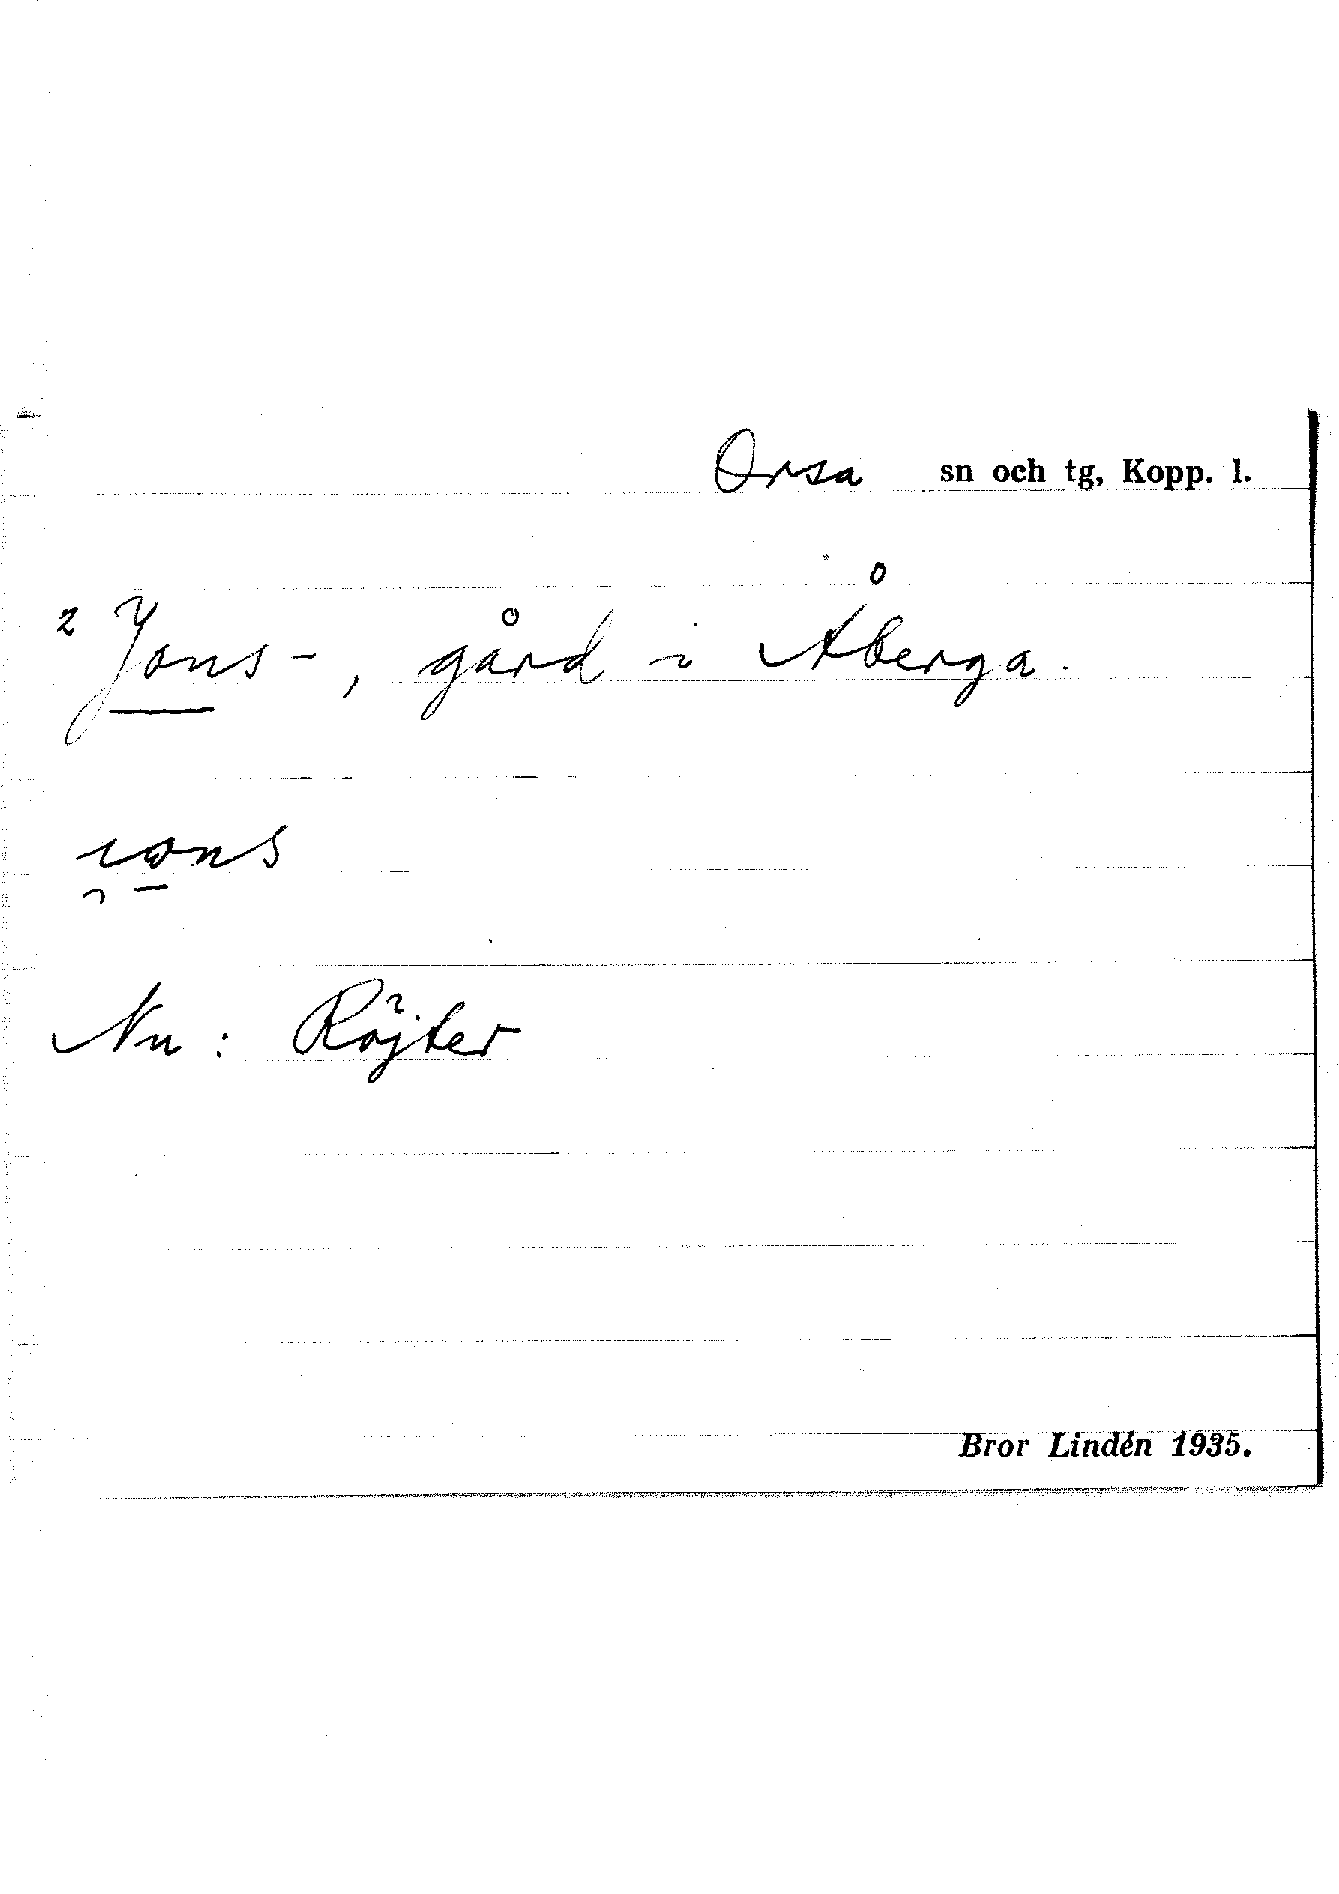 Orsa sn och tg, Kopp. l.
2 Jons-, gård i Åberga.
Nu: Röjter
Bror Lindén 1935.